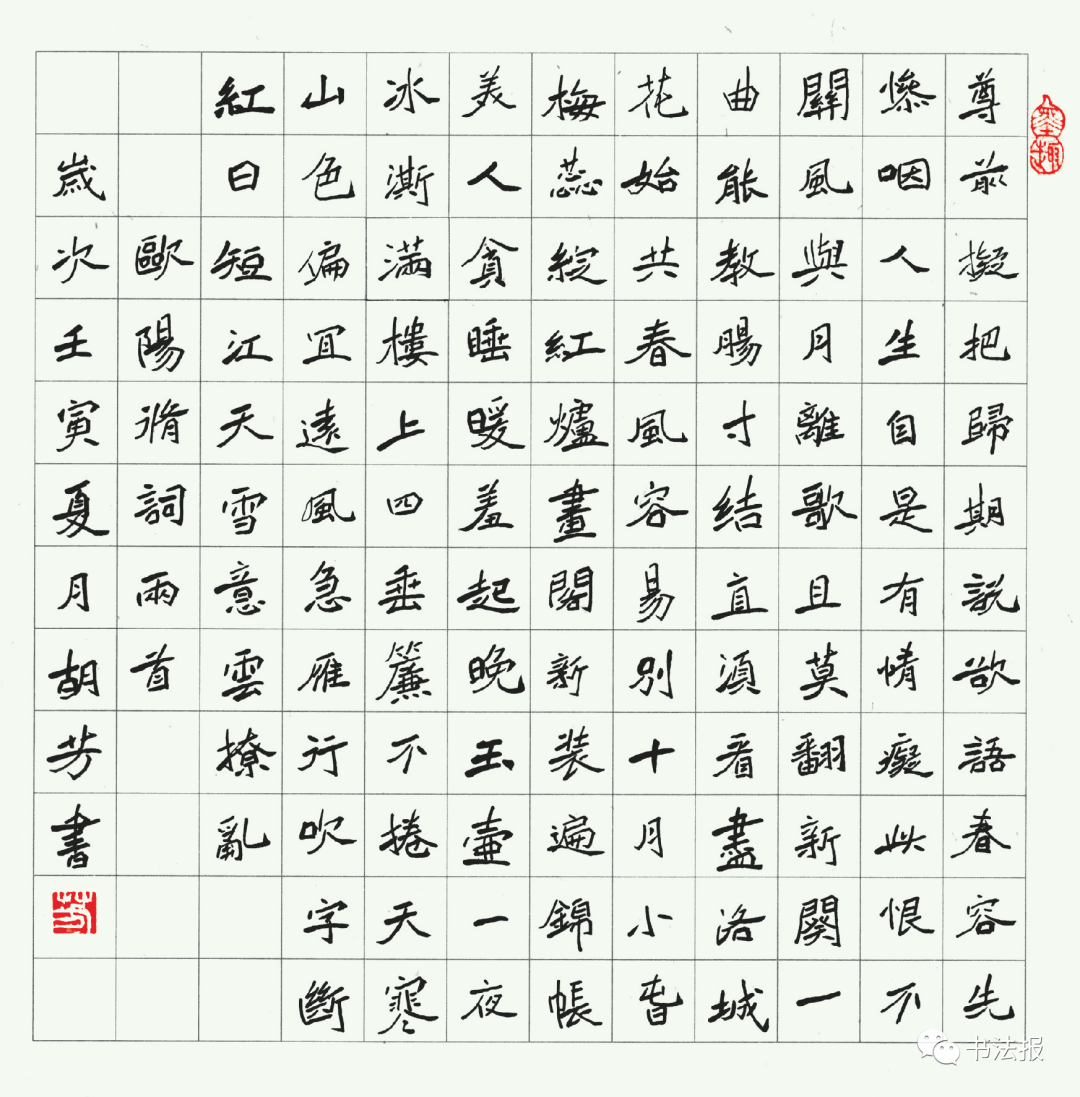 墨趣
尊前擬把歸期説欲語春容先
慘咽人生自是有情癡此恨不
關風與月離歌且莫翻新闋一
曲能教腸寸結直須看盡洛城
花始共春風容易別十月小春
梅蕊綻紅爐畫閣新装遍錦帳
美人貪睡暖羞起晚玉壺一夜
冰澌滿樓上四垂簾不捲天寒
山色偏宜遠風急雁行吹字斷
紅日短江天雪意雲撩亂
歐陽脩詞兩首
歲次壬寅夏月胡芳書
芳
书法报